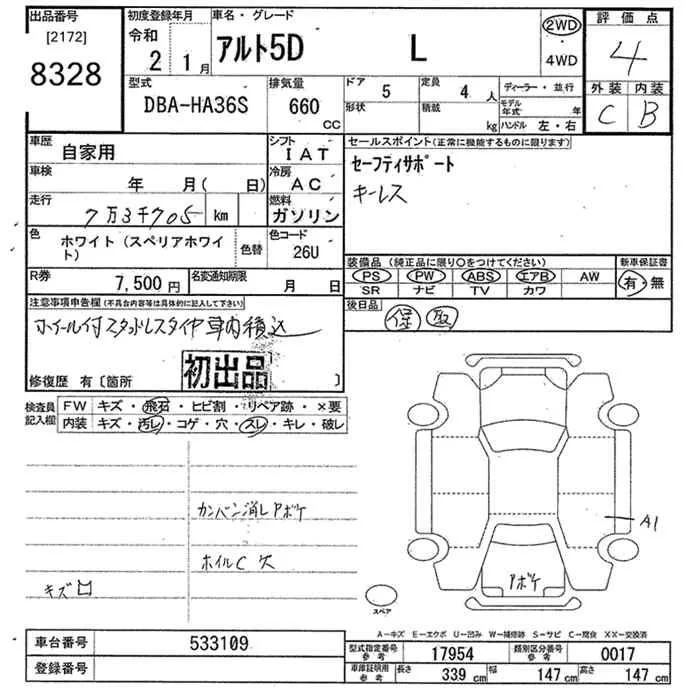 出品番号
[2172]
8328
初度登録年月
令和
2 1月
車名・グレード
アルト5D L
2WD
4WD
評価点
4
外装 内装
C B
型式
DBA-HA36S
排気量
660
CC
ドア 5
定員 4 人
形状
積載
kg
ディーラー・並行
モデル年式 年
ハンドル 左・右
車歴
自家用
シフト
IAT
セールスポイント(正常に機能するものに限ります)
セーフティサポート
キーレス
車検
年 月( 日)
冷房
AC
走行
7万3千705 km
燃料
ガソリン
色
ホワイト(スペリアホワイト)
色替
色コード
26U
装備品(純正品に限り○をつけてください)
PS PW ABS エアB AW
SR ナビ TV カワ
新車保証書
有・無
R券
7,500円
名変通知期限
月 日
後日品
保 取
注意事項申告欄(不具合内容等は具体的に記入して下さい)
ホイール付スタッドレスタイヤ車内積込
初出品
修復歴 有〔箇所 〕
検査員記入欄
FW キズ・飛石・ヒビ割・リペア跡・×要
内装 キズ・汚レ・コゲ・穴・スレ・キレ・破レ
カンバン消しPボケ
ホイルC 欠
キズロ
A1
Pボケ
スペア
A－キズ E－エクボ U－凹み W－補修跡 S－サビ C－腐食 XX－交換済
車台番号 533109
登録番号
型式指定番号 参考 17954
類別区分番号 参考 0017
車庫証明用 参考
長さ 339 cm
幅 147 cm
高さ 147 cm